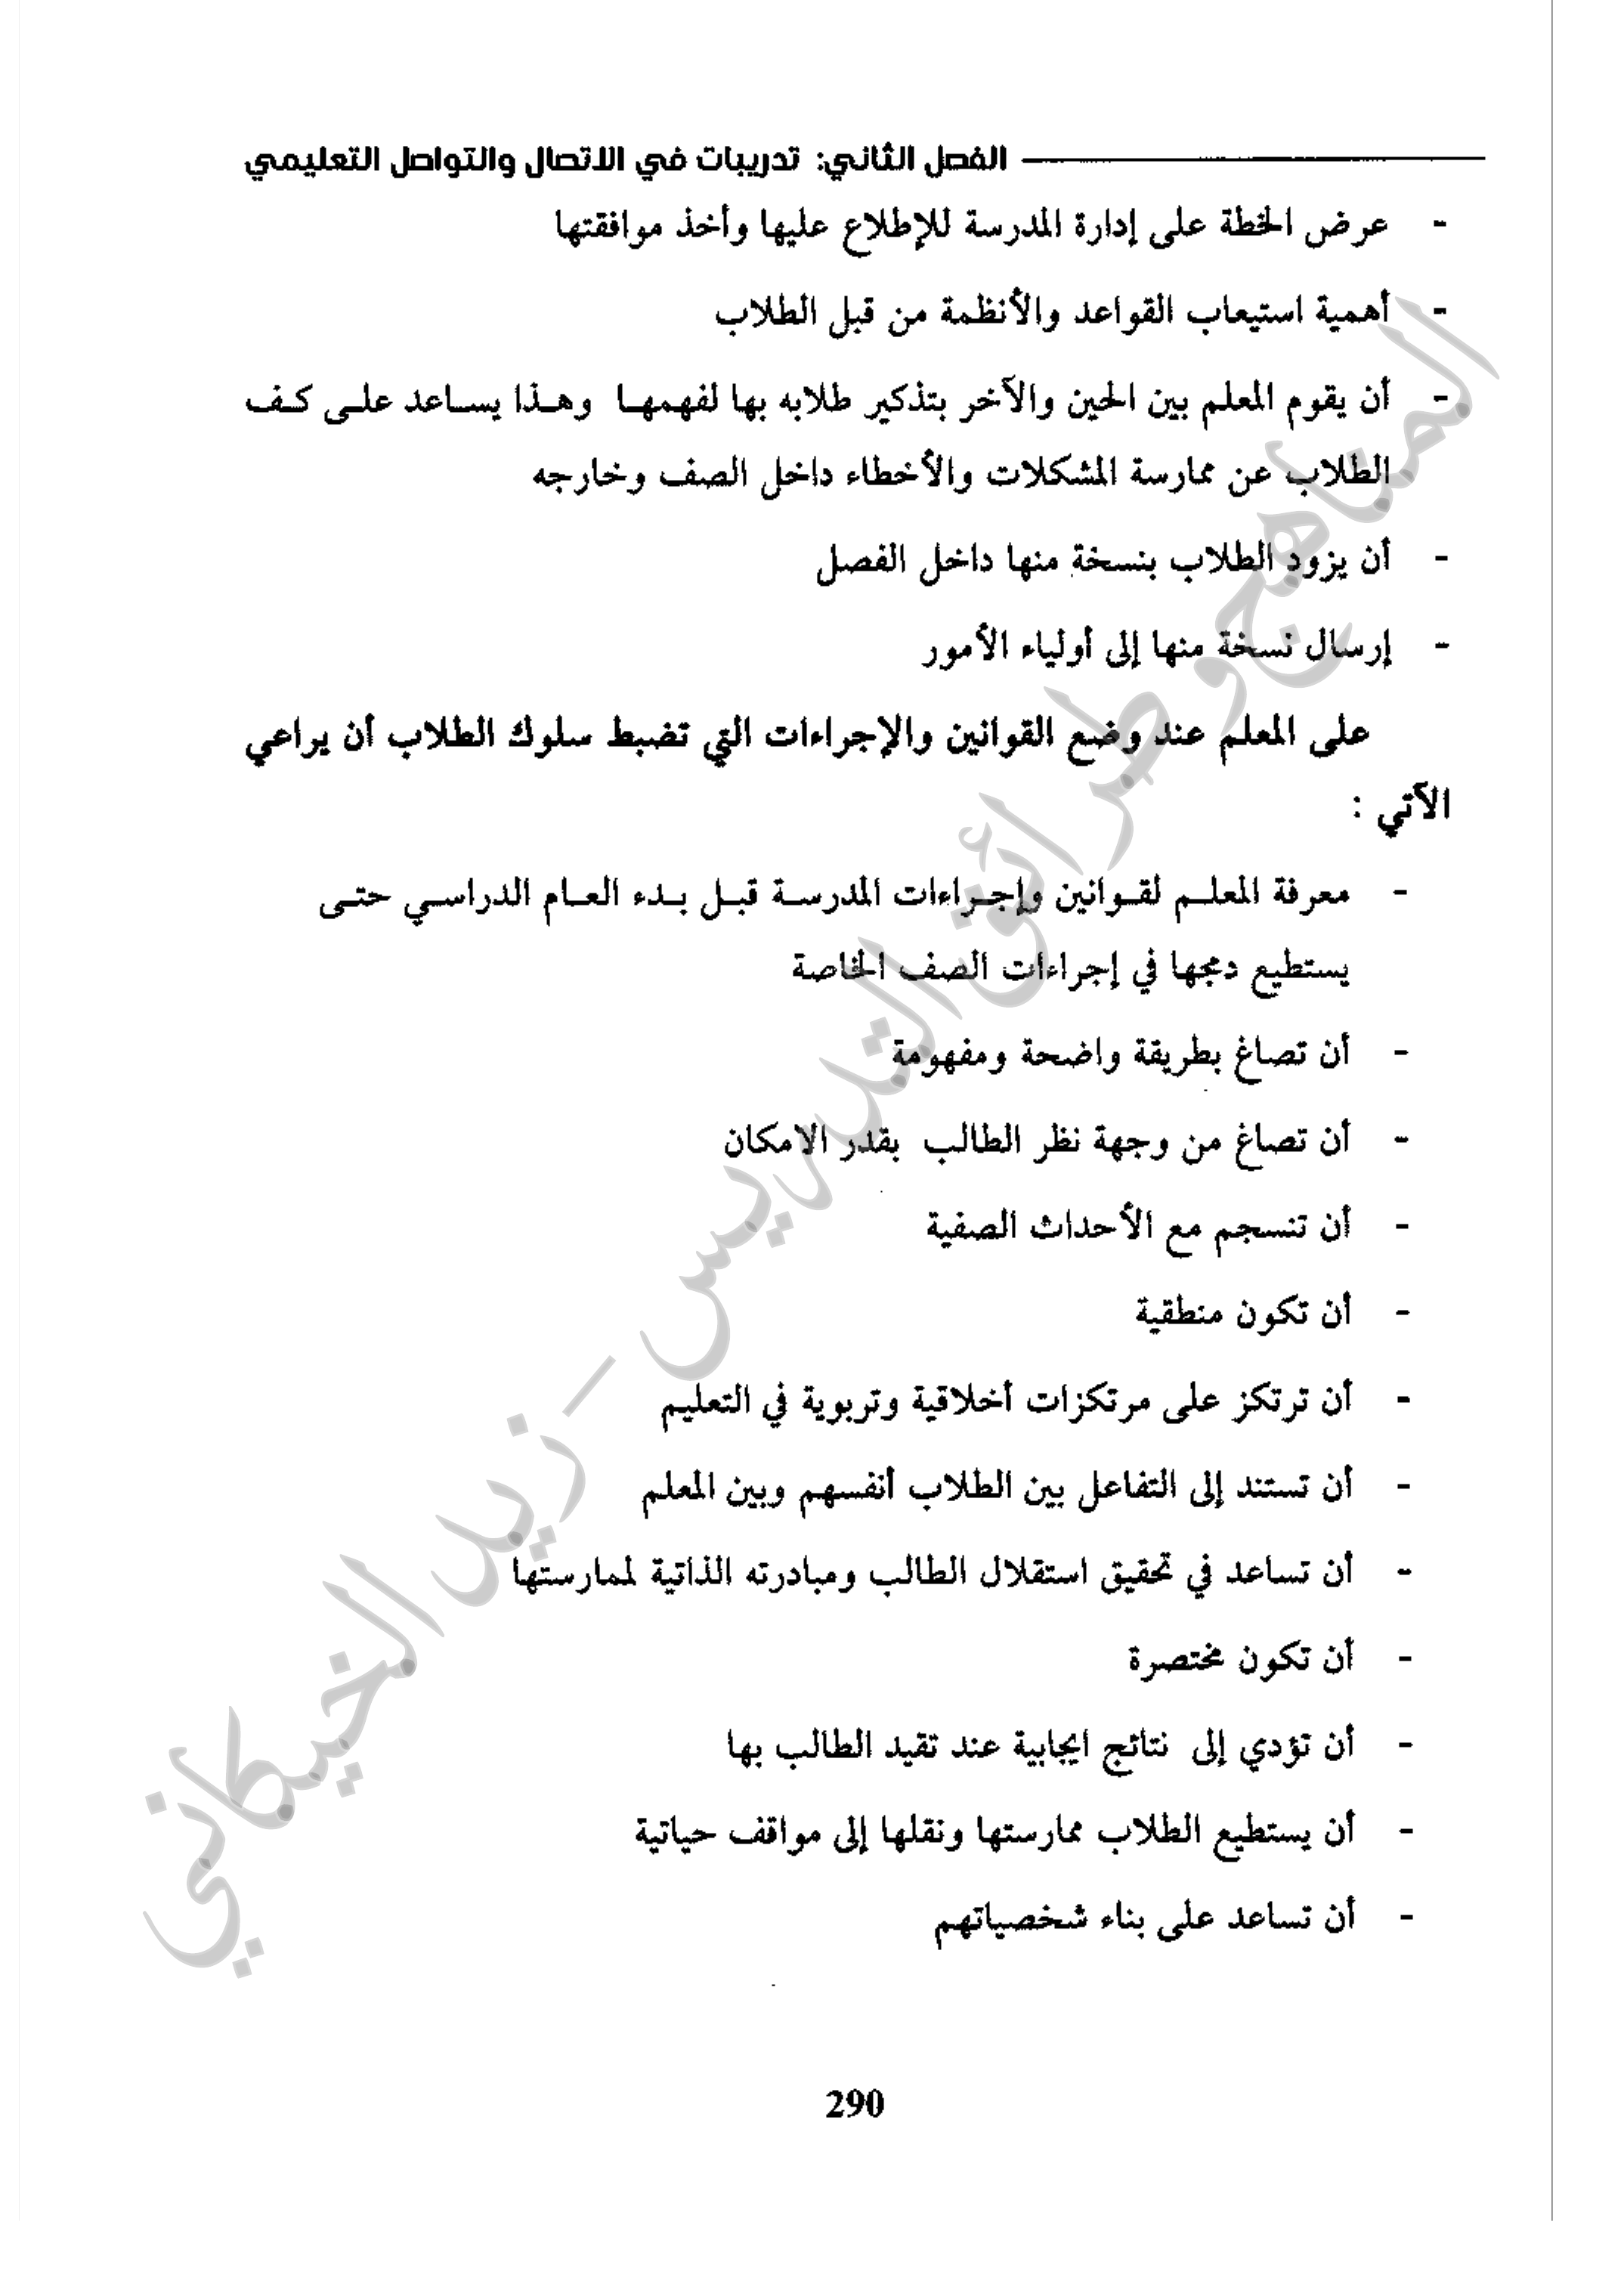 الفصل الثاني: تدريبات في الاتصال والتواصل التعليمي
- عرض الخطة على إدارة المدرسة للإطلاع عليها وأخذ موافقتها
- أهمية استيعاب القواعد والأنظمة من قبل الطلاب
- أن يقوم المعلم بين الحين والآخر بتذكير طلابه بها لفهمها وهذا يساعد على كف
الطلاب عن ممارسة المشكلات والأخطاء داخل الصف وخارجه
- أن يزود الطلاب بنسخة منها داخل الفصل
- إرسال نسخة منها إلى أولياء الأمور
على المعلم عند وضع القوانين والإجراءات التي تضبط سلوك الطلاب أن يراعي
الآتي :
- معرفة المعلم لقوانين وإجراءات المدرسة قبل بدء العام الدراسي حتى
يستطيع دمجها في إجراءات الصف الخاصة
- أن تصاغ بطريقة واضحة ومفهومة
- أن تصاغ من وجهة نظر الطالب بقدر الامكان
- أن تنسجم مع الأحداث الصفية
- أن تكون منطقية
- أن ترتكز على مرتكزات أخلاقية وتربوية في التعليم
- أن تستند إلى التفاعل بين الطلاب أنفسهم وبين المعلم
- أن تساعد في تحقيق استقلال الطالب ومبادرته الذاتية لممارستها
- أن تكون مختصرة
- أن تؤدي إلى نتائج ايجابية عند تقيد الطالب بها
- أن يستطيع الطلاب ممارستها ونقلها إلى مواقف حياتية
- أن تساعد على بناء شخصياتهم
290
المناهج وطرائق التدريس - زيد الخيكاني